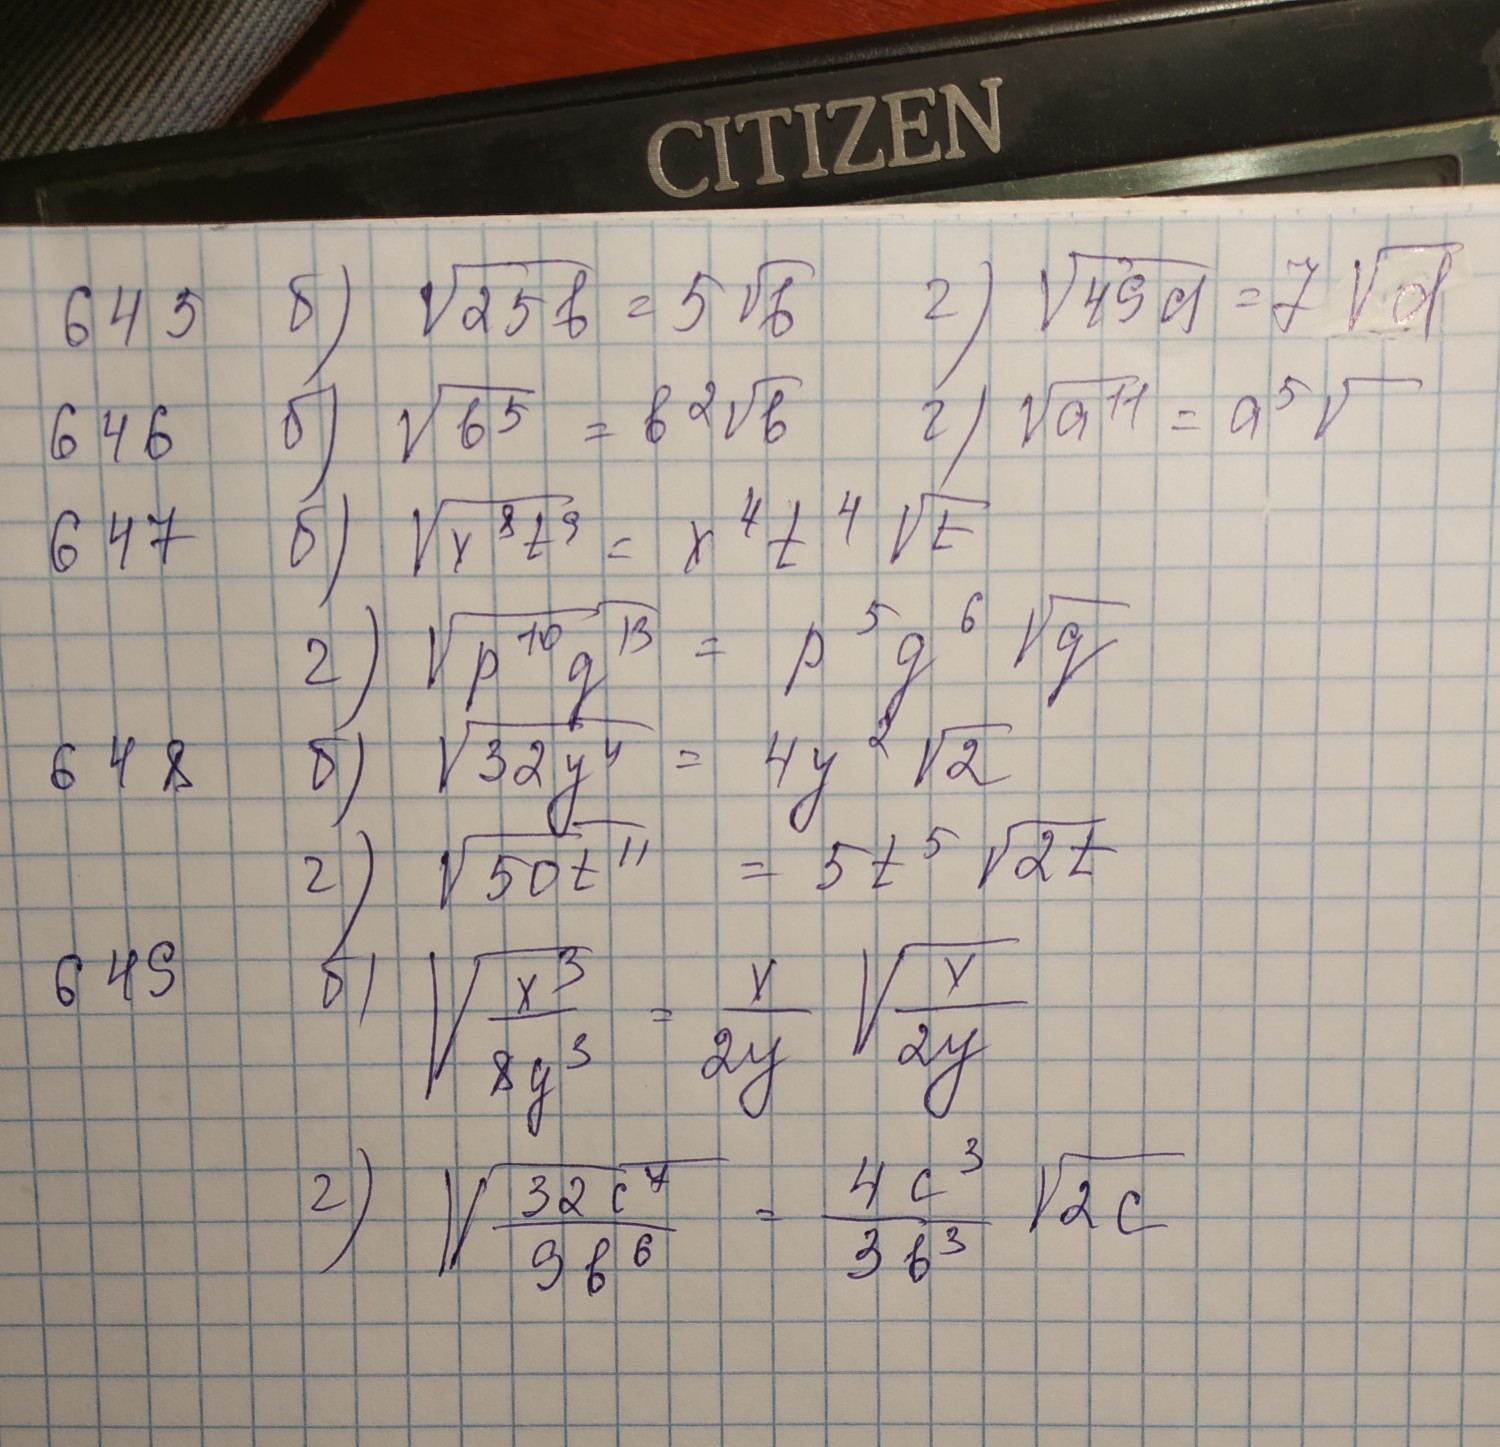 CITIZEN
645 б) √25b = 5√b г) √49d = 7√d
646 б) √b⁵ = b²√b г) √a¹¹ = a⁵√
647 б) √x⁸t⁹ = x⁴t⁴√t
г) √p¹⁰q¹³ = p⁵q⁶√q
648 б) √32y⁴ = 4y²√2
г) √50t¹¹ = 5t⁵√2t
649 б) √(x³/8y³) = x/2y √(x/2y)
г) √(32c⁷/9b⁶) = 4c³/3b³ √2c